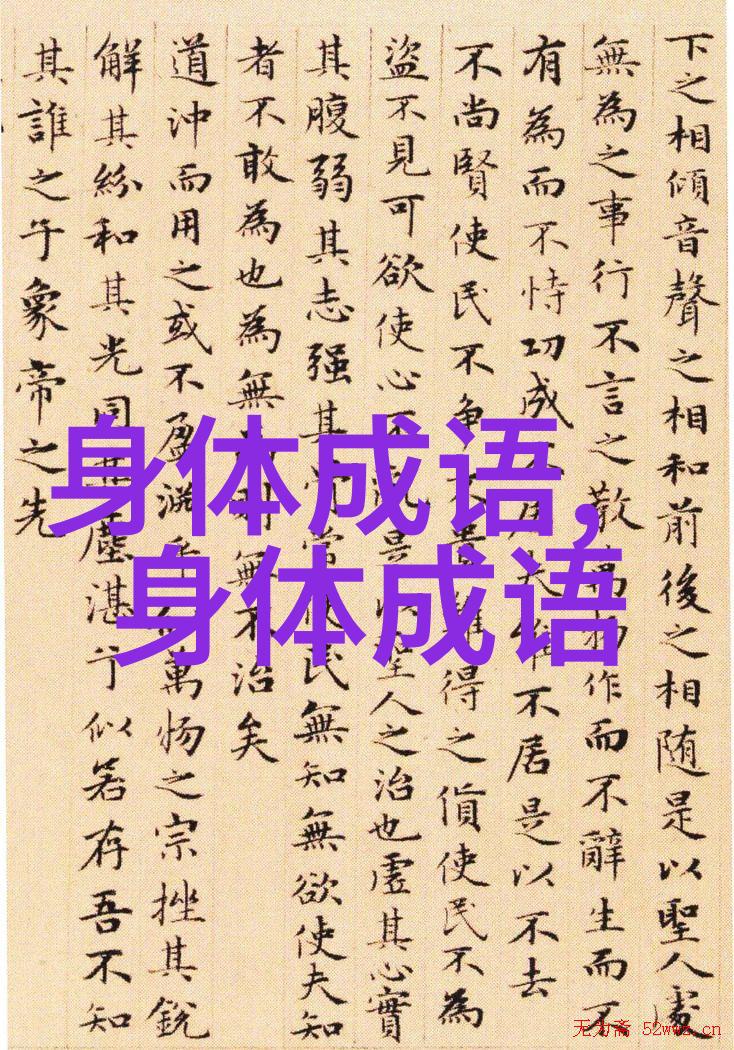 身体成语,
身体成语
下之相傾音聲之相和前後之相随是以聖人處
無為之事行不言之教萬物作而不辭生而不
有為而不恃功成不居夫唯不居是以不去
不尚賢使民不争不貴難得之貨使民不為
盜不見可欲使心不亂是以聖人之治也虛其心實
其腹弱其志强其骨常使民無知無欲使夫知
者不敢為也為無則無不治矣
道沖而用之或不盈淵乎萬物之宗挫其銳
解其紛和其光同其塵湛兮似若存吾不知
其誰之子象帝之先
无为斋 52wwz.cn